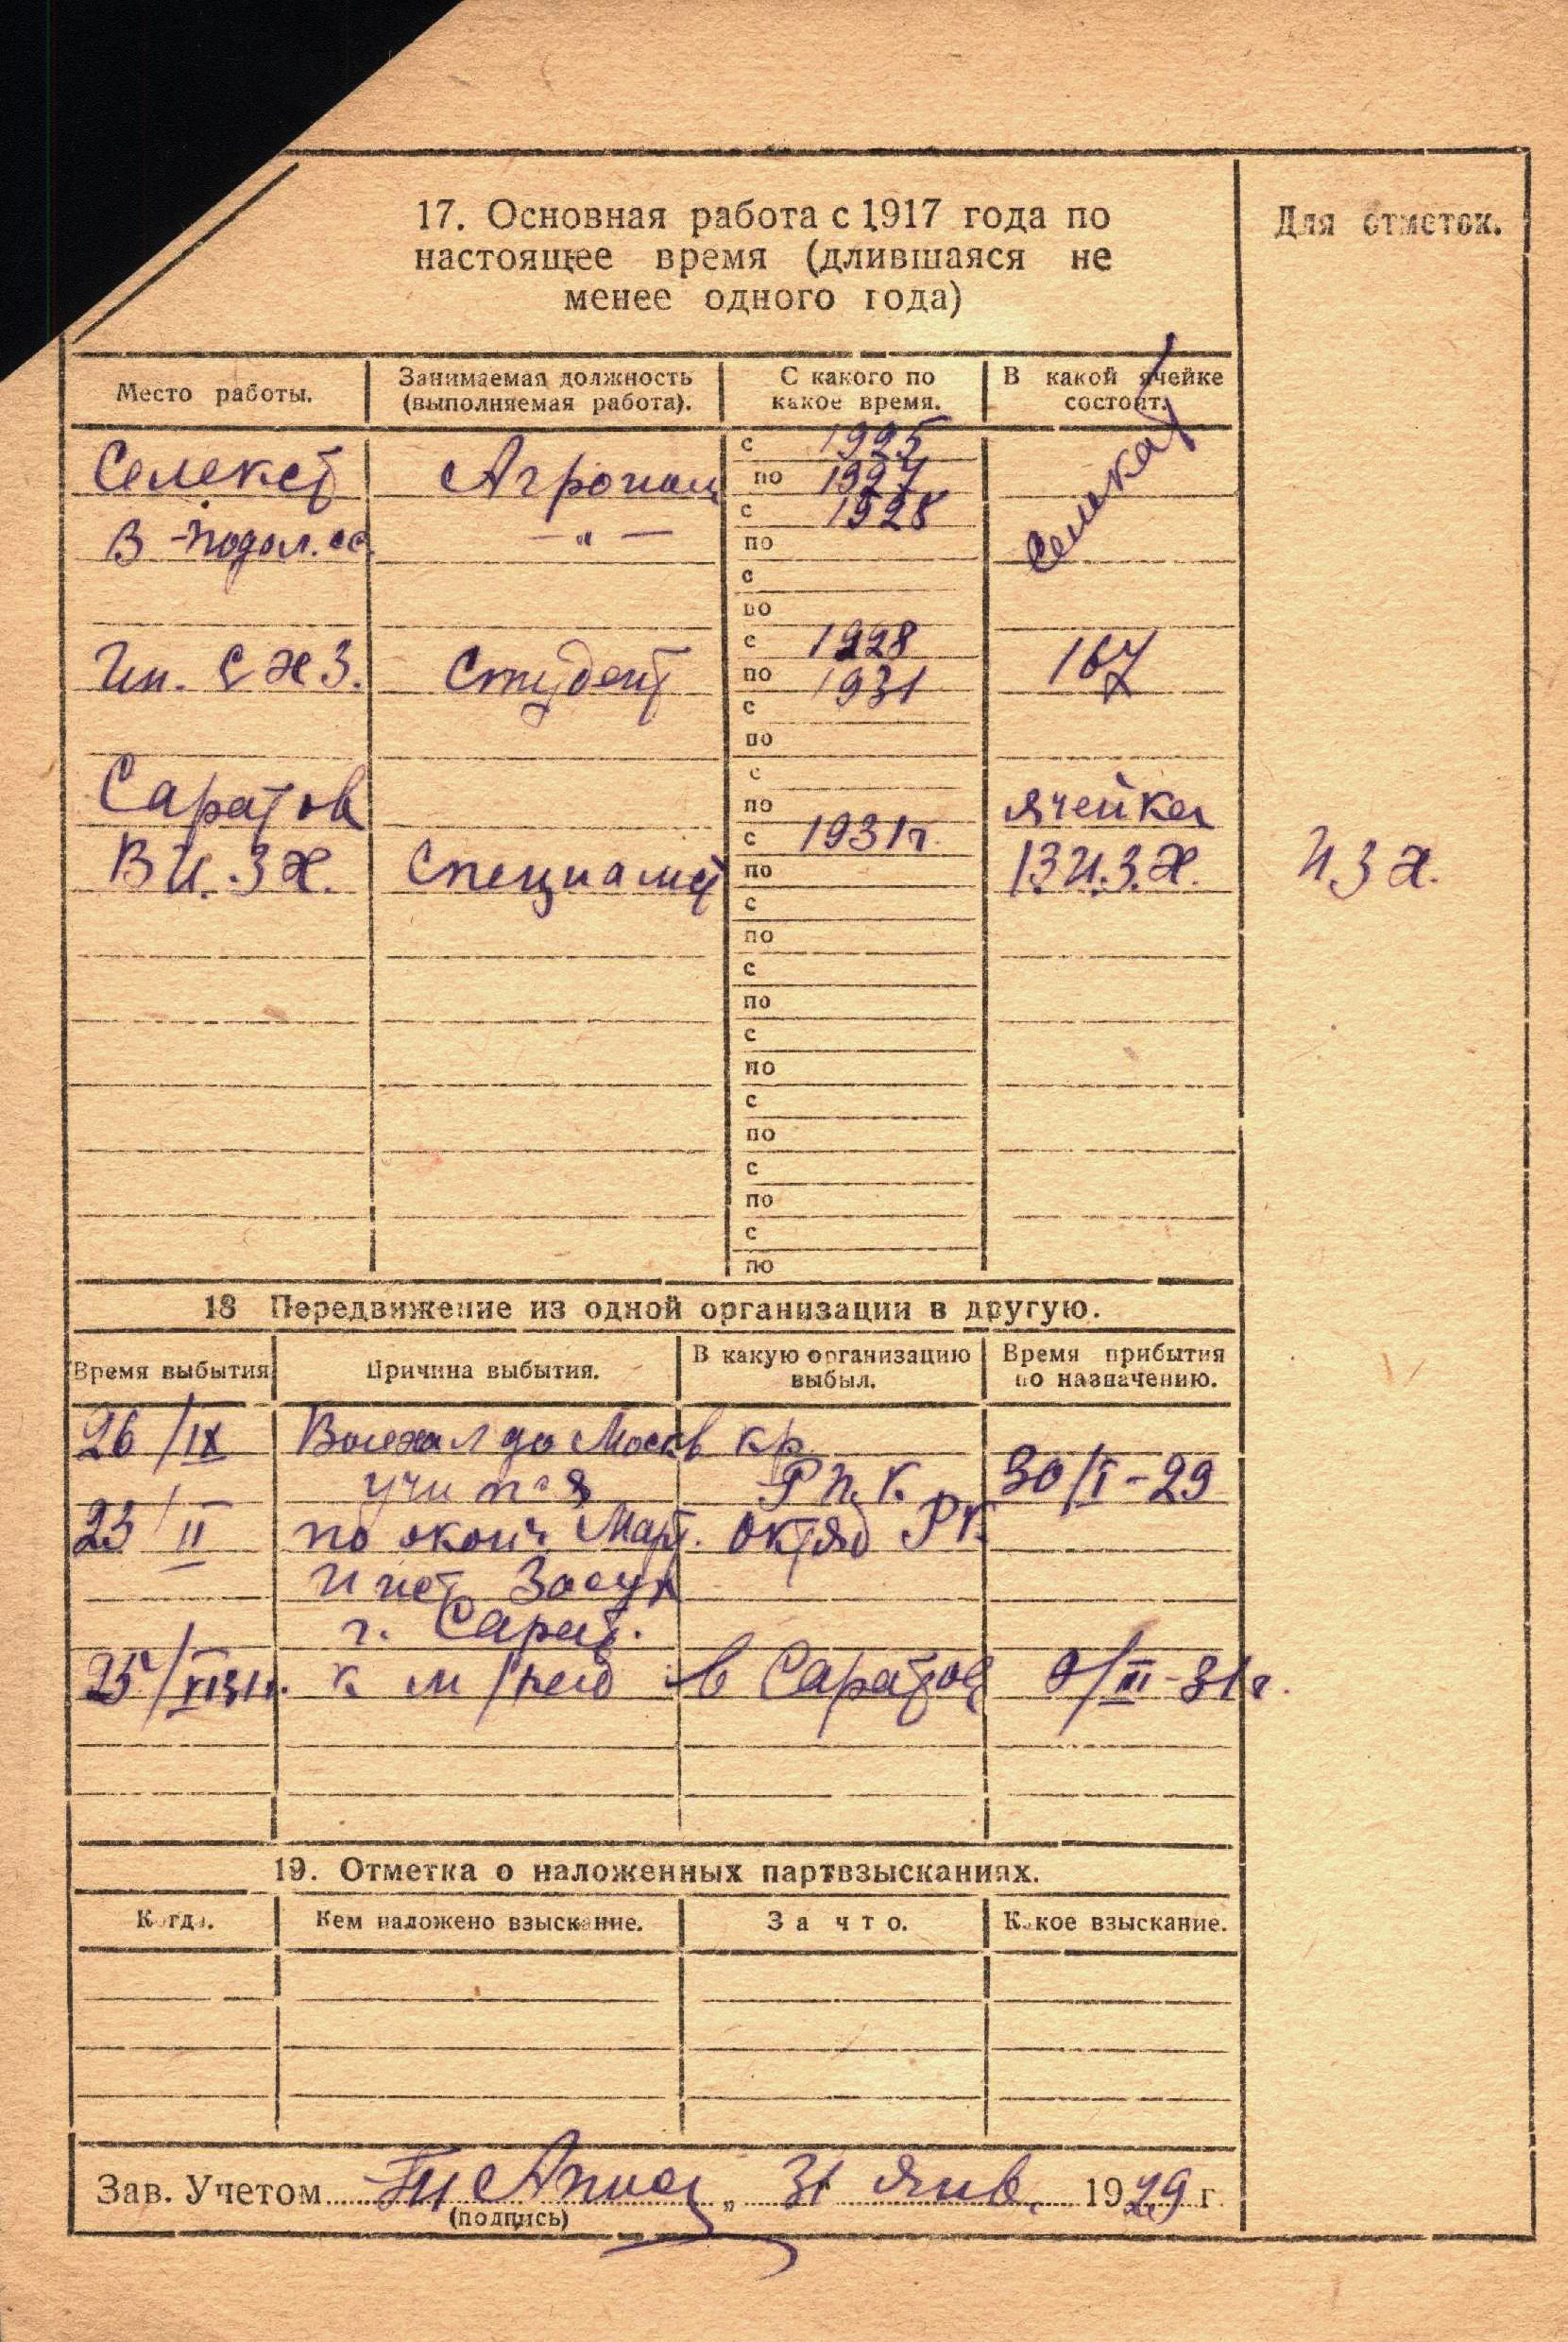 17. Основная работа с 1917 года по
настоящее время (длившаяся не
менее одного года)
Для отметок.
Место работы.
Занимаемая должность
(выполняемая работа).
С какого по
какое время.
В какой ячейке
состоит.
Селекст Агроном с 1925
по 1927
В-подол. сс. — " — с 1928
по
с
по
Ин. СХЗ. Студент с 1928 167
по 1931
с
по
Саратов с
по ячейка
В И. З Х. Специалист с 1931 г. В.И.З.Х. И З Х.
по
с
по
с
по
с
по
с
по
с
по
с
по
18 Передвижение из одной организации в другую.
Время выбытия
Причина выбытия.
В какую организацию
выбыл.
Время прибытия
по назначению.
26/IX Выехал до Москв кр
учится Р П. К. 30/I-29
23/II по оконч. октяб РК.
Инст Засух
г. Сарат.
25/ к м/раб в Саратов 9/III-31г.
19. Отметка о наложенных партвзысканиях.
Когда.
Кем наложено взыскание.
За что.
Какое взыскание.
Зав. Учетом „ 31 янв. 1929 г.
(подпись)